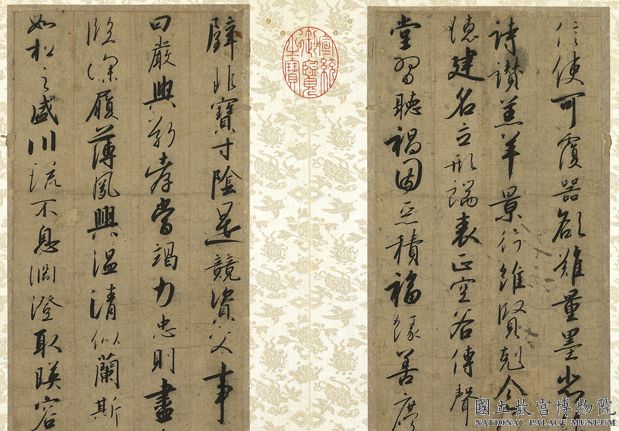 信使可覆器欲難量墨悲絲
詩讚羔羊景行維賢剋念
德建名立形端表正空谷傳聲
堂習聽禍因惡積福緣善慶
宣統御覽之寶
璧非寶寸陰是競資父事
曰嚴與敬孝當竭力忠則盡
臨深履薄夙興溫清似蘭斯
如松之盛川流不息淵澄取映容
國立故宮博物院
NATIONAL PALACE MUSEUM